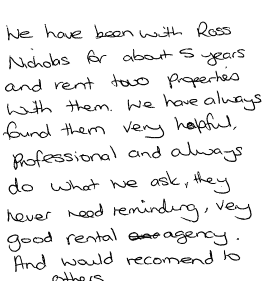 We have been with Ross
Nichobs for about 5 years
and rent two properties
with them. We have always
found them very helpful,
professional and always
do what we ask, they
never need reminding, very
good rental agency.
And would recomend to
others